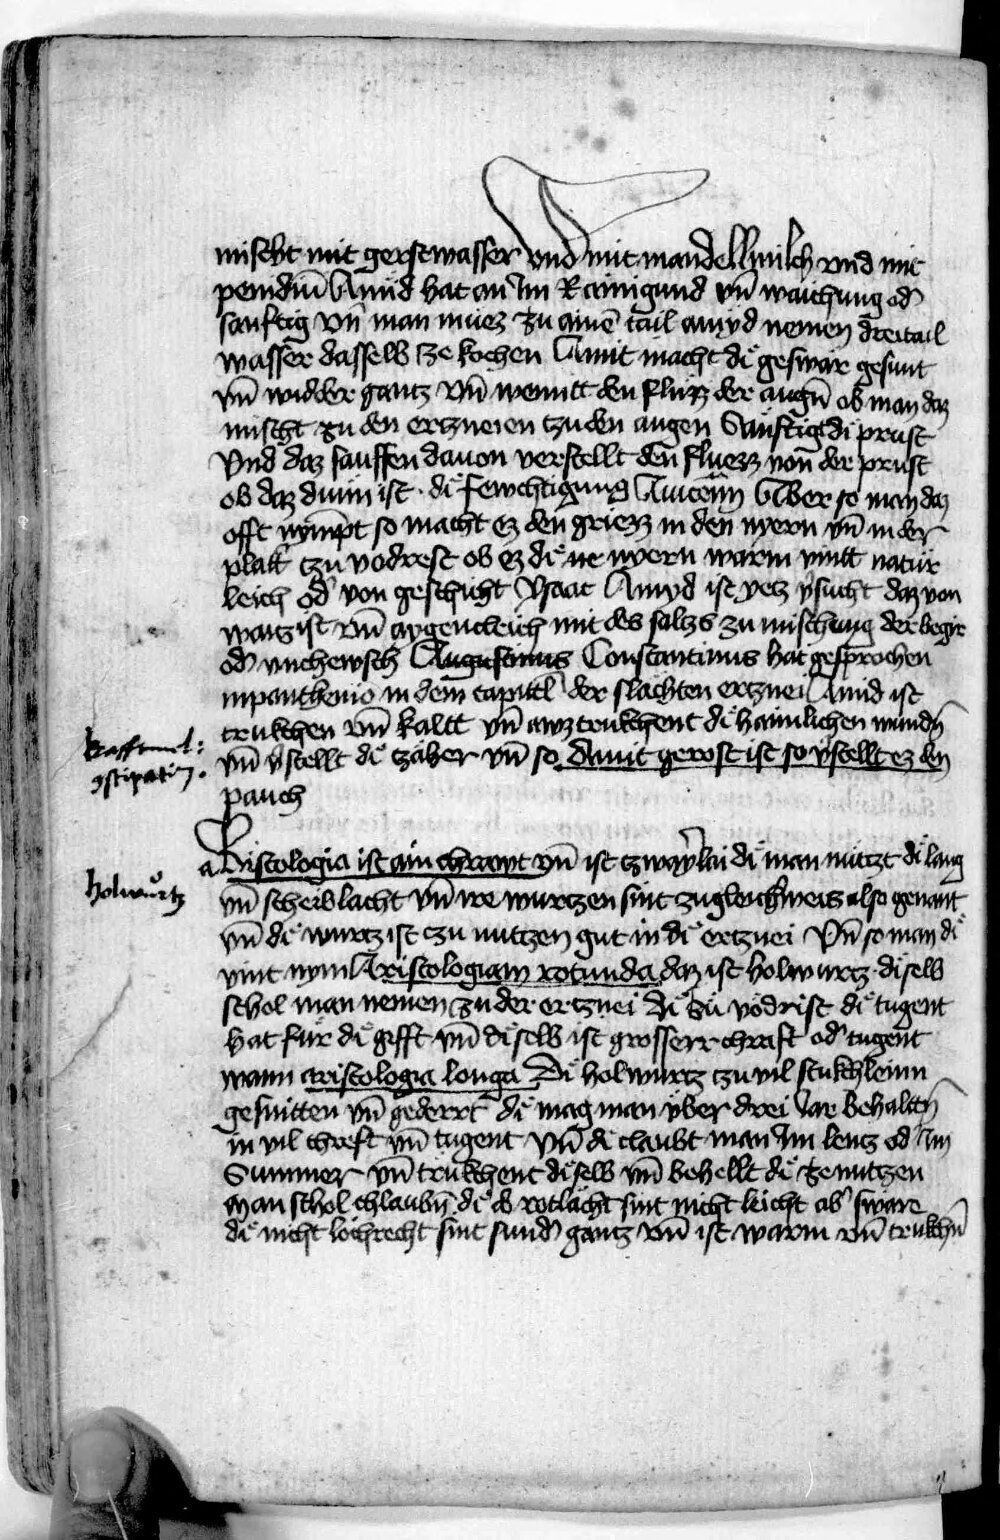 mischt mit gerstwasser vnd mit mandellmilch vnd mit
penidiu̅ Amid hat an Im Rainigund vn̅ waichung od̓
sanftig vn̅ man muez zu aine̅ tail amyd nemen dreitail
wasser dasselb ze kochen Amit macht di geswär gesunt
vn̅ widder gantz vn̅ wenitt den fluzz der augn̅ ob man daz
mischt zu den ertzneien tzu den augen Sänftigt di prust
Vnd daz sauffen dauon verstellt den fluezz von der prust
ob daz dunn ist di fewchtigung Auicenn Aber so man daz
offt nympt so macht ez den griezz in den nyern vn̅ in der
platt̓ tzu vodrest ob ez di ne nyern warm vintt natur
leich od̓ von geschicht Ysaac Amyd ist yetz v̓sucht daz von
waitz ist vn̅ aygentleich mit des saltzs zu mischung der begir
od̓ vnchewsch Augustinus Constantinus hat gesprochen
in panthenio in dem capittl̅ der slachten ertznei Amid ist
trukchen vn̅ kaltt vn̅ awztrukchent di haimlichen wundn̅
vn̅ v̓stellt di tzäher vn̅ so damit gerost ist so v̓stellt ez den
pauch
krafftmel:
ꝯstipatio̅.
a Aristologia ist ain chrawt vn̅ ist tzwaẏ lai di man nützt di lang
holwuͦrtz
vn̅ scheiblacht vn̅ ire wurtzen sint zugleichweis also genant
vn̅ di wurtz ist tzu nutzen gut in di ertznei Vn̅ so man di
vint nym Aristologiam rotunda daz ist holwurtz diselb
schol man nemen zu der ertznei Di zu vödrist di tugent
hat für di gifft vn̅ diselb ist grosserr chraft od̓ tugent
wann aristologia longa Di holwurtz zu vil stukchleinn
gesnitten vn̅ gederrt di mag man yber drei Iar behaltn̅
in vil chreft vn̅ tugent Vn̅ di claubt man Im lentz od̓ Im
Summer vn̅ trukchent diselb vn̅ behellt di ze nutzen
Man schol chlaubn̅ di ob rotlacht sint nicht leicht ab̓ sware
di nicht lochrecht sint sund̓ gantz vn̅ ist warm vn̅ trukchn̅